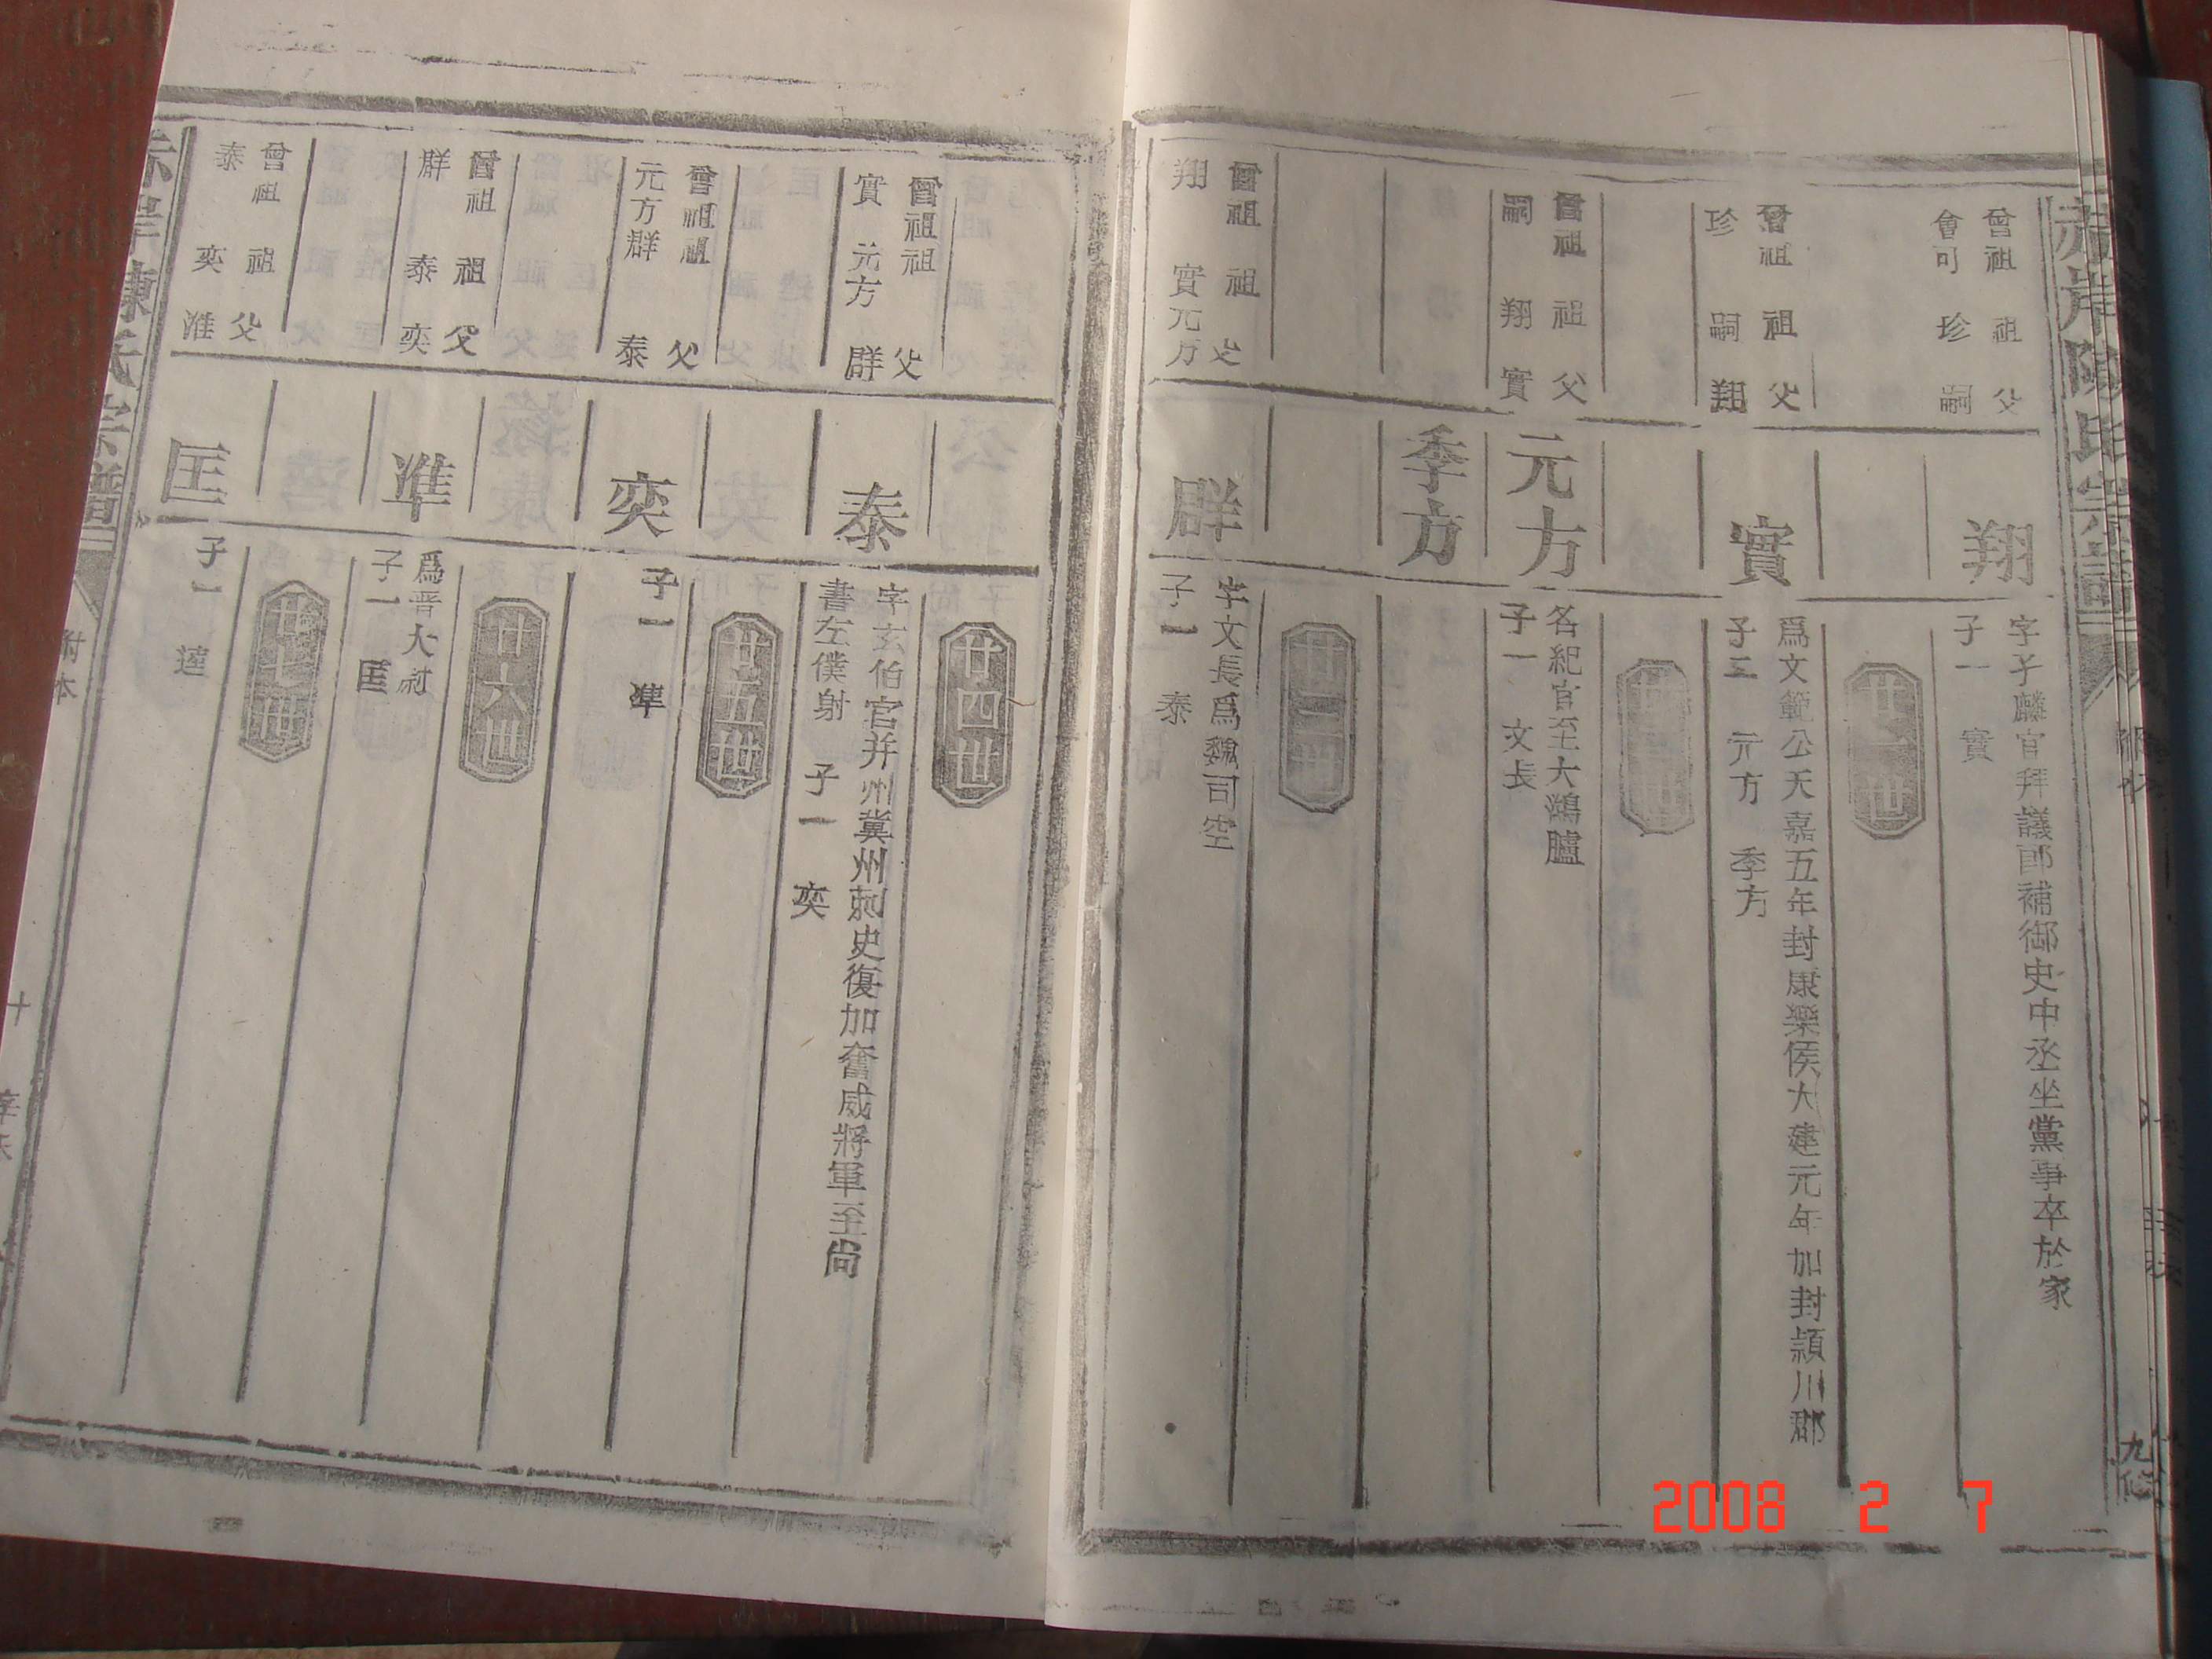 赤岸陳氏宗譜
九修
曾祖 祖 父
會可 珍 嗣
翔
字子麟官拜議郎補御史中丞坐黨事卒於家
子一 實
廿一世
曾祖 祖 父
珍 嗣 翔
實
為文範公天嘉五年封康樂侯大建元年加封潁川郡
子三 元方 季方
曾祖 祖 父
嗣 翔 實
元方
名紀官至大鴻臚
子一 文長
季方
廿三世
曾祖 祖 父
翔 實 元方
群
字文長爲魏司空
子一 泰
廿四世
曾祖 祖 父
實 元方 群
泰
字玄伯官并州冀州刺史復加奮威將軍至尙
書左僕射 子一 奕
廿五世
曾祖 祖 父
元方 群 泰
奕
子一 準
廿六世
曾祖 祖 父
群 泰 奕
準
爲晋大尉
子一 匡
廿七世
曾祖 祖 父
泰 奕 准
匡
子一 逵
赤岸陳氏宗譜
附本
十
2008 2 7